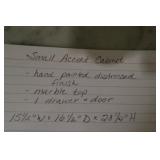 Small Accent Cabinet
- hand painted distressed
finish
- marble top
- 1 drawer + door
15 1/2" W x 16 1/2" D x 28 3/4" H